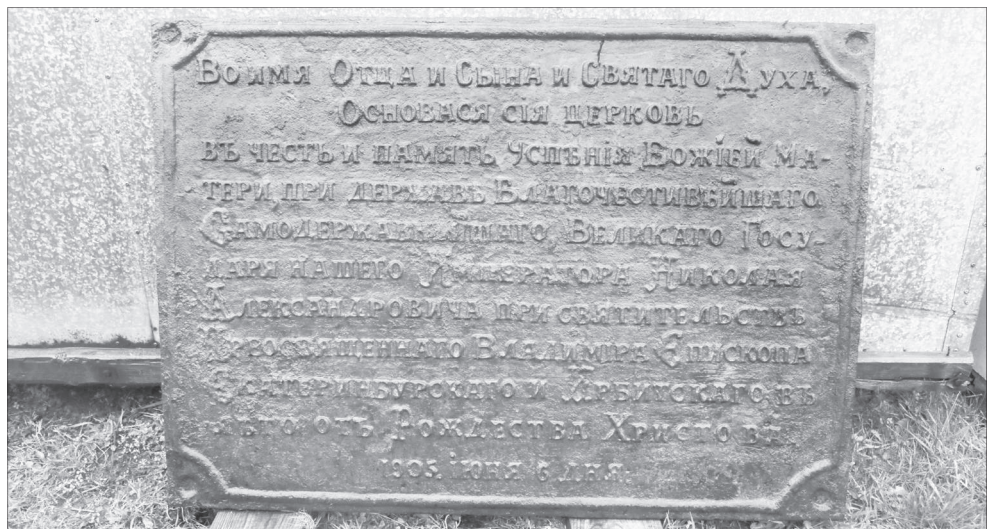 Во имя Отца и Сына и Святаго Духа,
Основася сія церковь
въ честь и память Успѣнія Божіей Ма-
тери, при державѣ Благочестивѣйшаго
Самодержавнѣйшаго, Великаго Госу-
даря нашего Императора Николая
Александровича при святительствѣ
Преосвященнаго Владиміра Епископа
Екатеринбурскаго и Ирбитскаго въ
лѣто отъ Рождества Христова
іюня 6 дня.